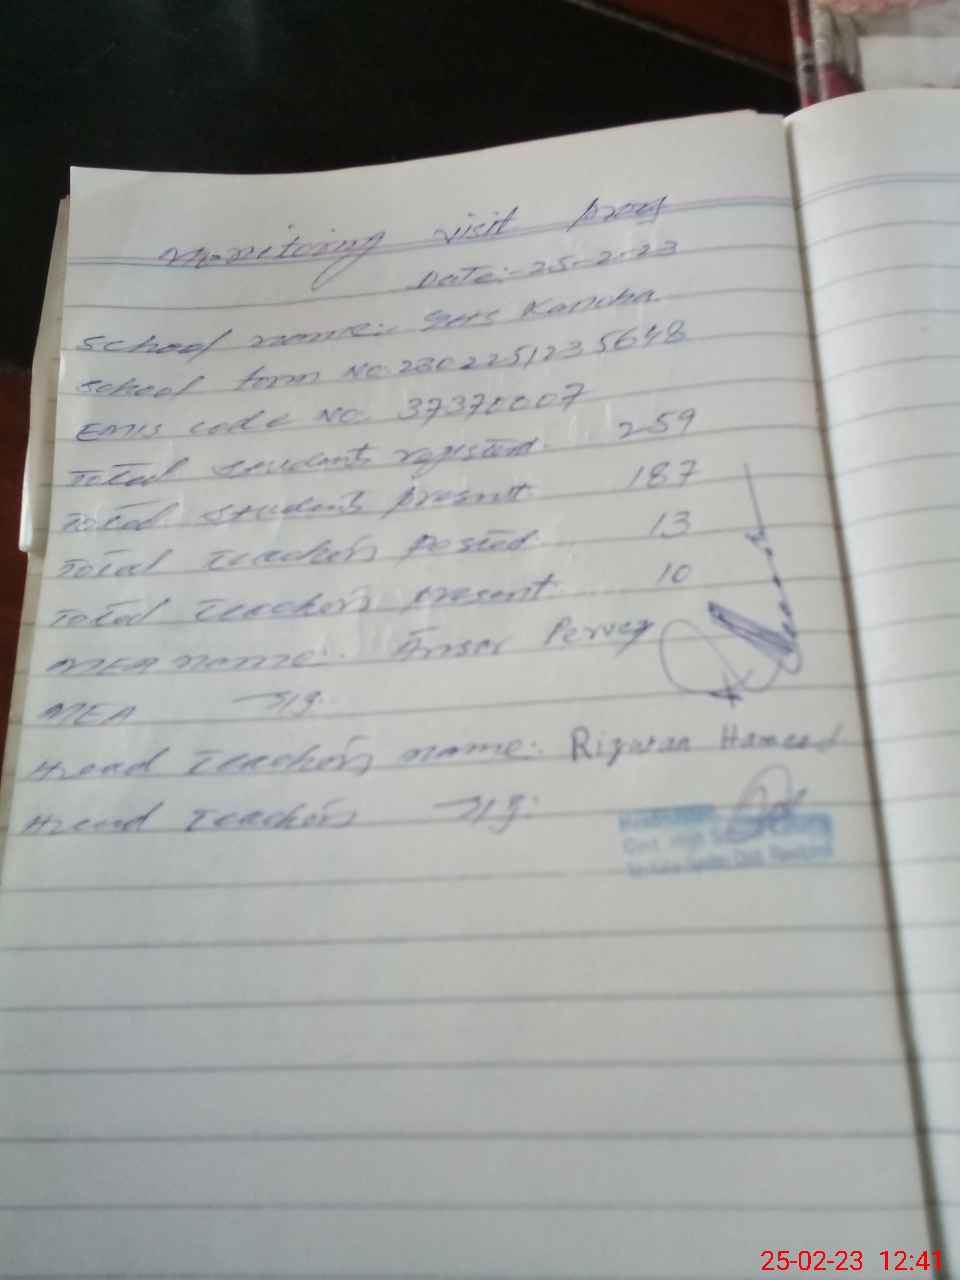 Monitoring visit proof
Date:- 25-2-23
School name:- GHS Kanoha
School form No. 2302251235648
EMIS code No. 37370007
Total students registered. 259
Total students present 187
Total Teachers Posted. 13
Total Teachers present 10
MEA name:. Ansar Pervez
MEA Sig:
Head Teachers name:. Rizwan Hameed
Head Teachers Sig:
Govt. High
25-02-23 12:41